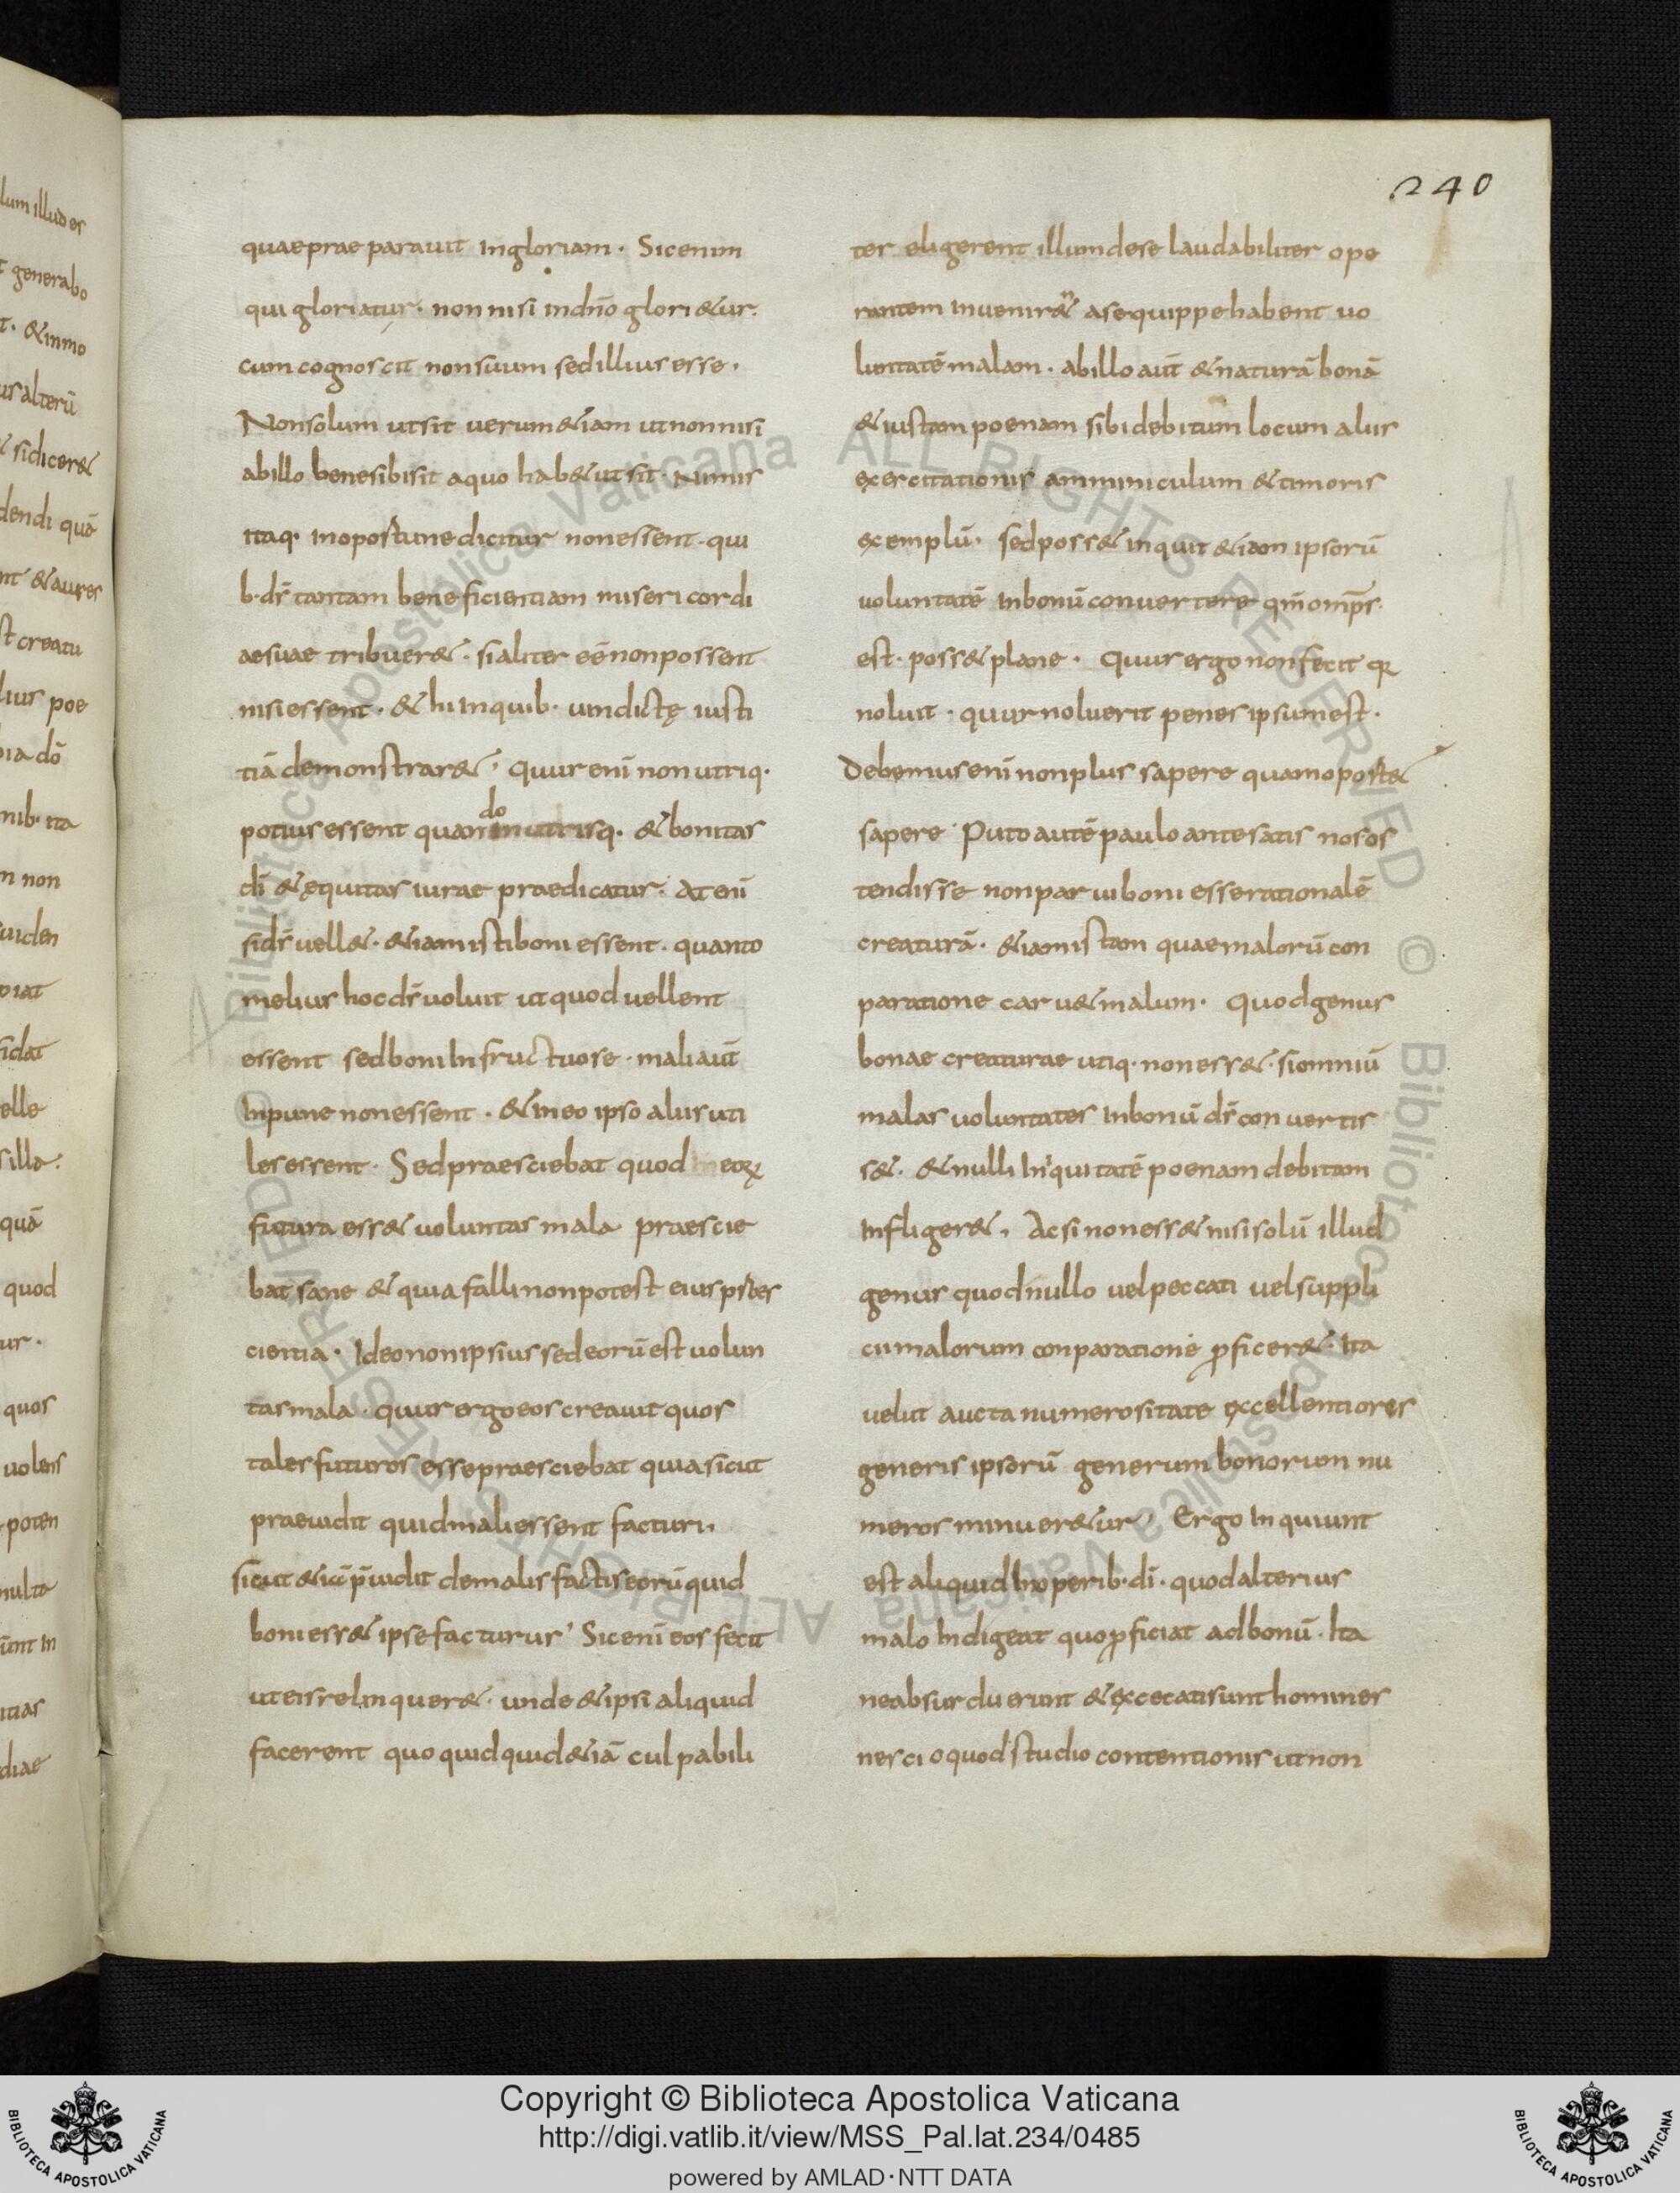 240
quae prae parauit in gloriam · Sicenim
qui gloriatur · non nisi in dño glori&ur ·
cum cognoscit non suum sed illius esse ·
Non solum ut sit uerum &iam ut non nisi
ab illo bene sibi sit a quo hab& ut sit · Nimis
itaq· inoportune dicitur non essent · qui
b· dš tantam beneficientiam misericordi
ae suae tribuer& · si aliter eē non possent
nisi essent · & hi in quib· uindictę iusti
tiā demonstrar& · Quur enī non utriq·
do
potius essent quan in utrisq· & bonitas
dī & ęquitas iurae praedicatur · At enī
si dš uell& · &iam isti boni essent · quanto
melius hoc dš uoluit ut quod uellent
essent sed boni infructuose · mali aut̄
inpune non essent · & in eo ipso aliis uti
les essent · Sed praesciebat quod eoꝝ
futura ess& uoluntas mala praescie
bat sane & quia falli non potest eius pres
cientia · Ideo non ipsius sed eorū est uolun
tas mala · quur ergo eos creauit quos
tales futuros esse praesciebat quia sicut
praeuidit quid mali essent facturi ·
sicut &iā p̄uidit de malis factis eorū quid
boni ess& ipse facturus · Sic enī eos fecit
ut eis relinquer& · unde & ipsi aliquid
facerent quo quidquid &iā culpabili
ter eligerent illum de se laudabiliter ope
rantem inuenir& a se quippe habent uo
luntatē malam · ab illo aut̄ & naturā bonā
& iustam poenam sibi debitum locum aliis
exercitationis amminiculum & timoris
exemplū · sed poss& inquit &iam ipsorū
uoluntatē in bonū conuertere qm̄ omp̄s ·
est · poss& plane · Quur ergo non fecit qr
noluit · quur noluerit penes ipsum est ·
Debemus enī non plus sapere quam oport&
sapere · Puto autē paulo ante satis nos os
tendisse non parui boni esse rationalē
creaturā · &iam istam quae malorū con
paratione cau& malum · Quod genus
bonae creaturae utiq· non ess& · si omniū
malas uoluntates in bonū dš conuertis
s& · & nulli iniquitatē poenam debitam
infliger& · Ac si non ess& nisi solū illud
genus quod nullo uel peccati uel suppli
cii malorum conparatione ꝓficer& · ita
uelut aucta numerositate excellentiores
generis ipsorū generum bonorum nu
meros minuer&ur · Ergo inquiunt
est aliquid in operib· dī · quod alterius
malo indigeat quo ꝓficiat ad bonū · Ita
ne absurduerunt & excecati sunt homines
nescio quod studio contentionis ut non
Copyright © Biblioteca Apostolica Vaticana
http://digi.vatlib.it/view/MSS_Pal.lat.234/0485
powered by AMLAD·NTT DATA